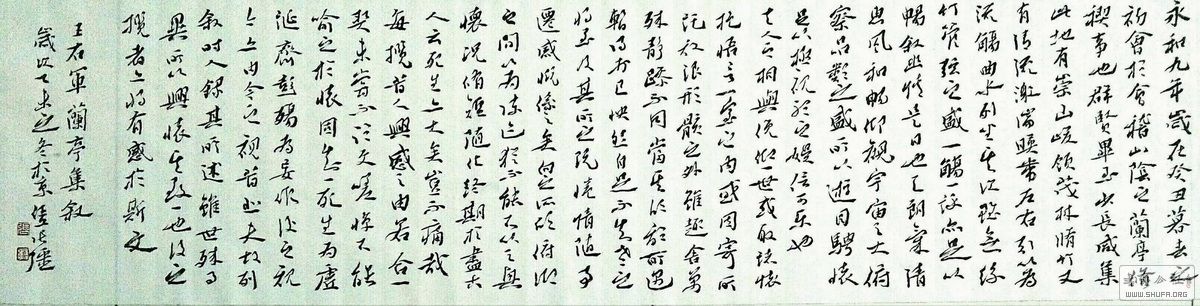 永和九年歲在癸丑暮春之
初會於會稽山陰之蘭亭脩
禊事也群賢畢至少長咸集
此地有崇山峻領茂林脩竹又
有清流激湍暎帶左右引以為
流觴曲水列坐其次雖無絲
竹管弦之盛一觴一詠亦足以
暢叙幽情是日也天朗氣清
惠風和暢仰觀宇宙之大俯
察品類之盛所以遊目騁懷
足以極視聽之娛信可樂也
夫人之相與俯仰一世或取諸懷
抱悟言一室之內或因寄所
託放浪形骸之外雖趣舍萬
殊靜躁不同當其欣於所遇
暫得於己快然自足不知老之
將至及其所之既惓情隨事
遷感慨係之矣向之所欣俯仰
之間以為陳迹猶不能不以之興
懷況脩短隨化終期於盡古
人云死生亦大矣豈不痛哉
每攬昔人興感之由若合一
契未嘗不臨文嗟悼不能
喻之於懷固知一死生為虛
誕齊彭殤為妄作後之視
今亦由今之視昔悲夫故列
叙時人錄其所述雖世殊事
異所以興懷其致一也後之
攬者亦將有感於斯文
王右軍蘭亭集叙
歲次未之冬於京
WWW.SHUFA.ORG